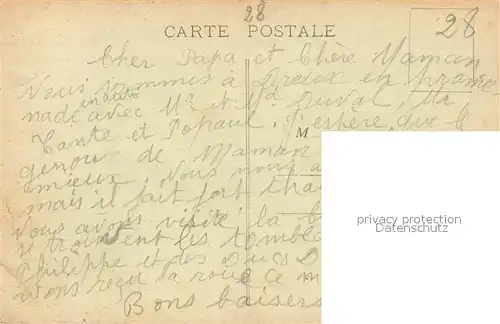 28
CARTE POSTALE
28
Cher Papa et Chère Maman
Nous sommes à Dreux en prome
nade avec Mr et Md Duval, Ma
en auto
Tante et Popaul. J'espère que le
genou de Maman
M
mieux. Nous nous a
mais il fait fort cha
Nous avons visité la
se trouvent les tombea
Philippe et des Ducs D
avons reçu la roue ce m
Bons baisers
privacy protection
Datenschutz